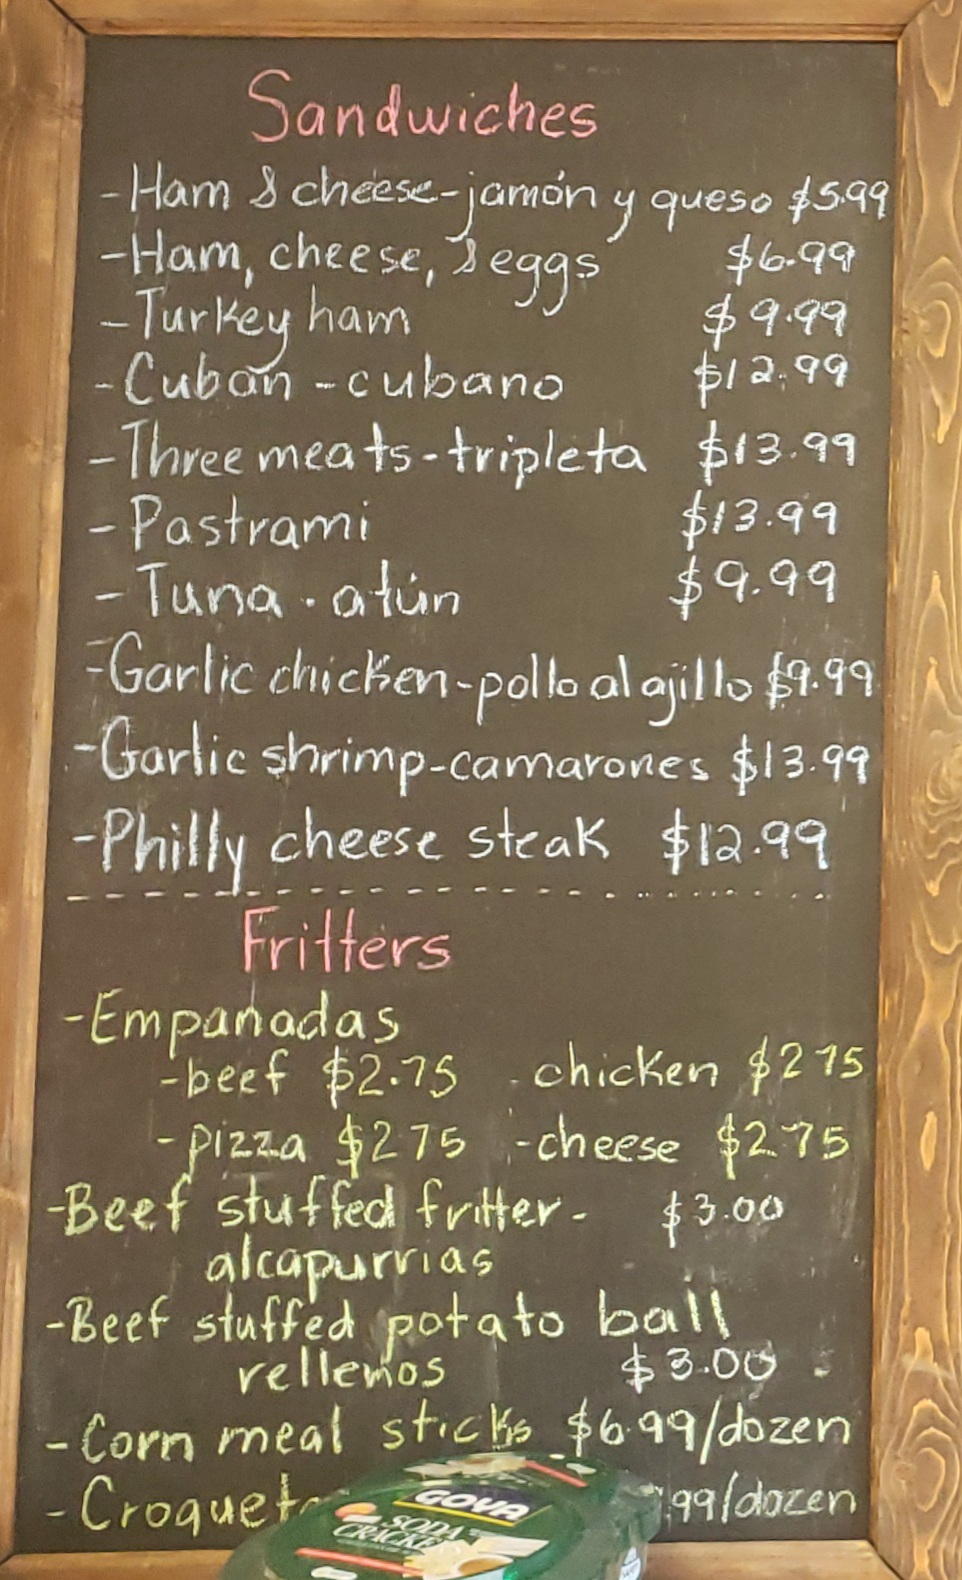 Sandwiches
-Ham & cheese-jamón y queso $5.99
-Ham, cheese, & eggs $6.99
-Turkey ham $9.99
-Cuban -cubano $12.99
-Three meats-tripleta $13.99
-Pastrami $13.99
-Tuna . atún $9.99
-Garlic chicken-pollo al ajillo $9.99
-Garlic shrimp-camarones $13.99
-Philly cheese steak $12.99
Fritters
-Empanadas
-beef $2.75 . chicken $2 75
-pizza $2 75 -cheese $2.75
-Beef stuffed fritter- $3.00
alcapurrias
-Beef stuffed potato ball
rellenos $3.00 -
-Corn meal sticks $6.99/dozen
- 99/dozen
GOYA
SODA